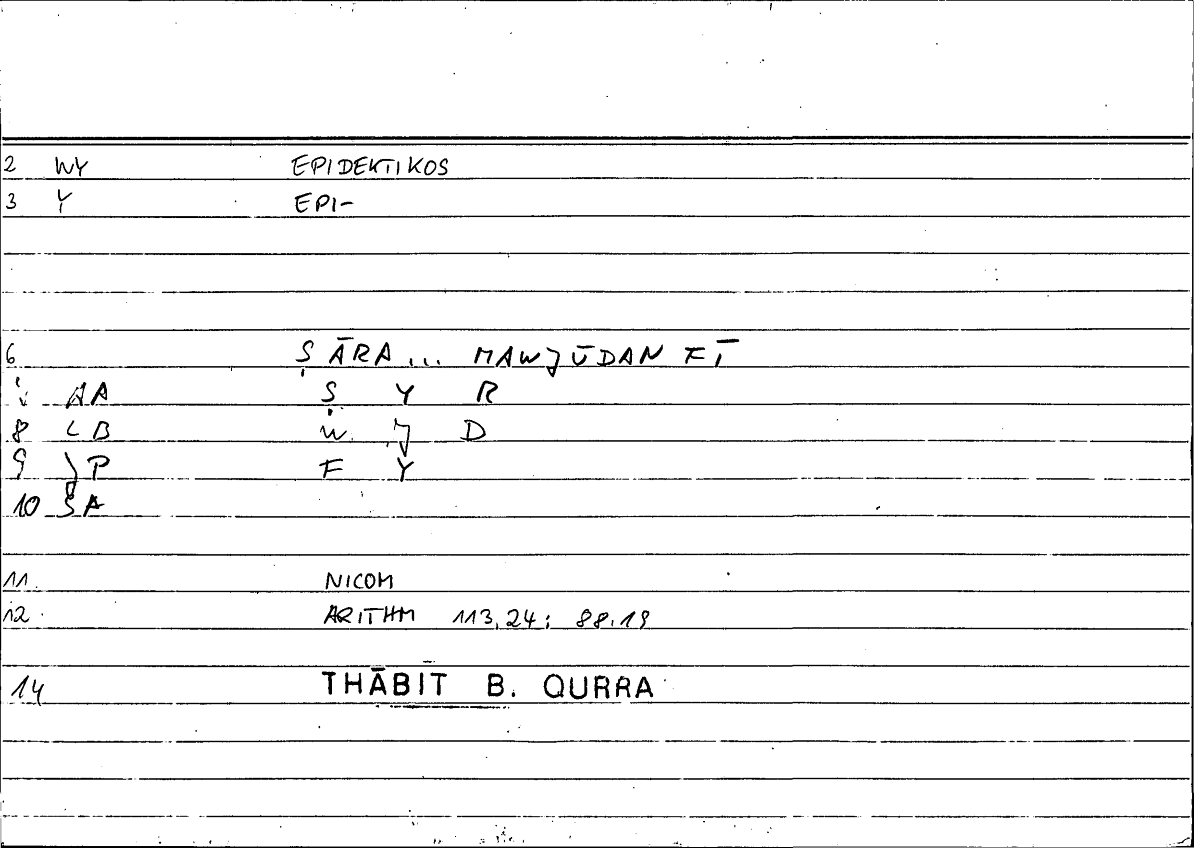 2 WY EPIDEKTIKOS
3 Y EPI-
6 ṢĀRA... MAWJŪDAN FĪ
AA Ṣ Y R
8 B W J D
9 P F Y
10 A
11 NICOM
12 ARITHM 113,24; 88,19
14 THĀBIT B. QURRA